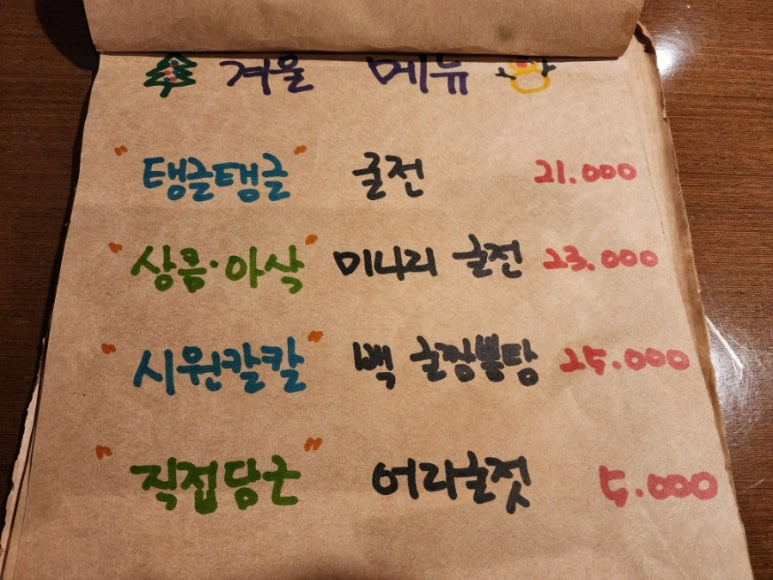 겨울 메뉴
"탱글탱글" 굴전 21.000
"상큼·아삭" 미나리 굴전 23.000
"시원칼칼" 백 굴짬뽕탕 25.000
"직접담근" 어리굴젓 5.000